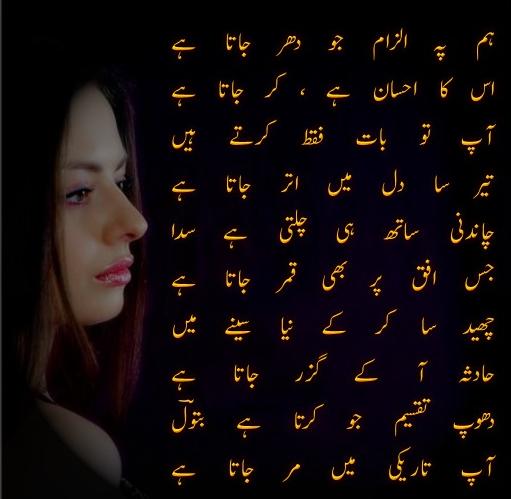 ہم پہ الزام جو دھر جاتا ہے
اس کا احسان ہے ، کر جاتا ہے
آپ تو بات فقط کرتے ہیں
تیر سا دل میں اتر جاتا ہے
چاندنی ساتھ ہی چلتی ہے سدا
جس افق پر بھی قمر جاتا ہے
چھید سا کر کے نیا سینے میں
حادثہ آ کے گزر جاتا ہے
دھوپ تقسیم جو کرتا ہے بتولؔ
آپ تاریکی میں مر جاتا ہے